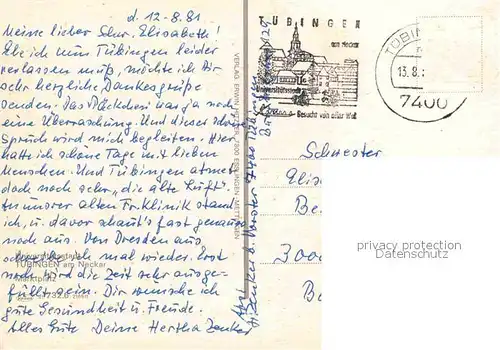 d. 12-8.81
Meine lieber Schw. Elisabeth!
Ehe ich nun Tübingen leider
verlassen muß, möchte ich Dir
sehr herzliche Dankesgrüße
senden. Das Päckchen war ja noch
eine Überraschung. Und dieser schöne
Spruch wird mich begleiten. Hier
hatt ich schöne Tage m. lieben
Menschen. Und Tübingen atmet
doch noch sehr "die alte Luft".
In unserer alten Fr. Klinik stand
ich, u. davor schaut's fast genauso
noch aus. Von Dresden aus
schreibe ich mal wieder. Erst
noch wird die Zeit sehr ausge-
füllt sein. Dir wünsche ich
gute Gesundheit u. Freude.
Alles Gute Deine Hertha Zenker
TÜBINGEN am Neckar
Marktplatz
Abs.
H. Zenker b. Vorster 7400
TÜBINGEN
am Neckar
Universitätsstadt
Besucht von aller Welt
TÜBIN
13.8.
7400
Schwester
Elis
Be
3000
Be
privacy protection
Datenschutz